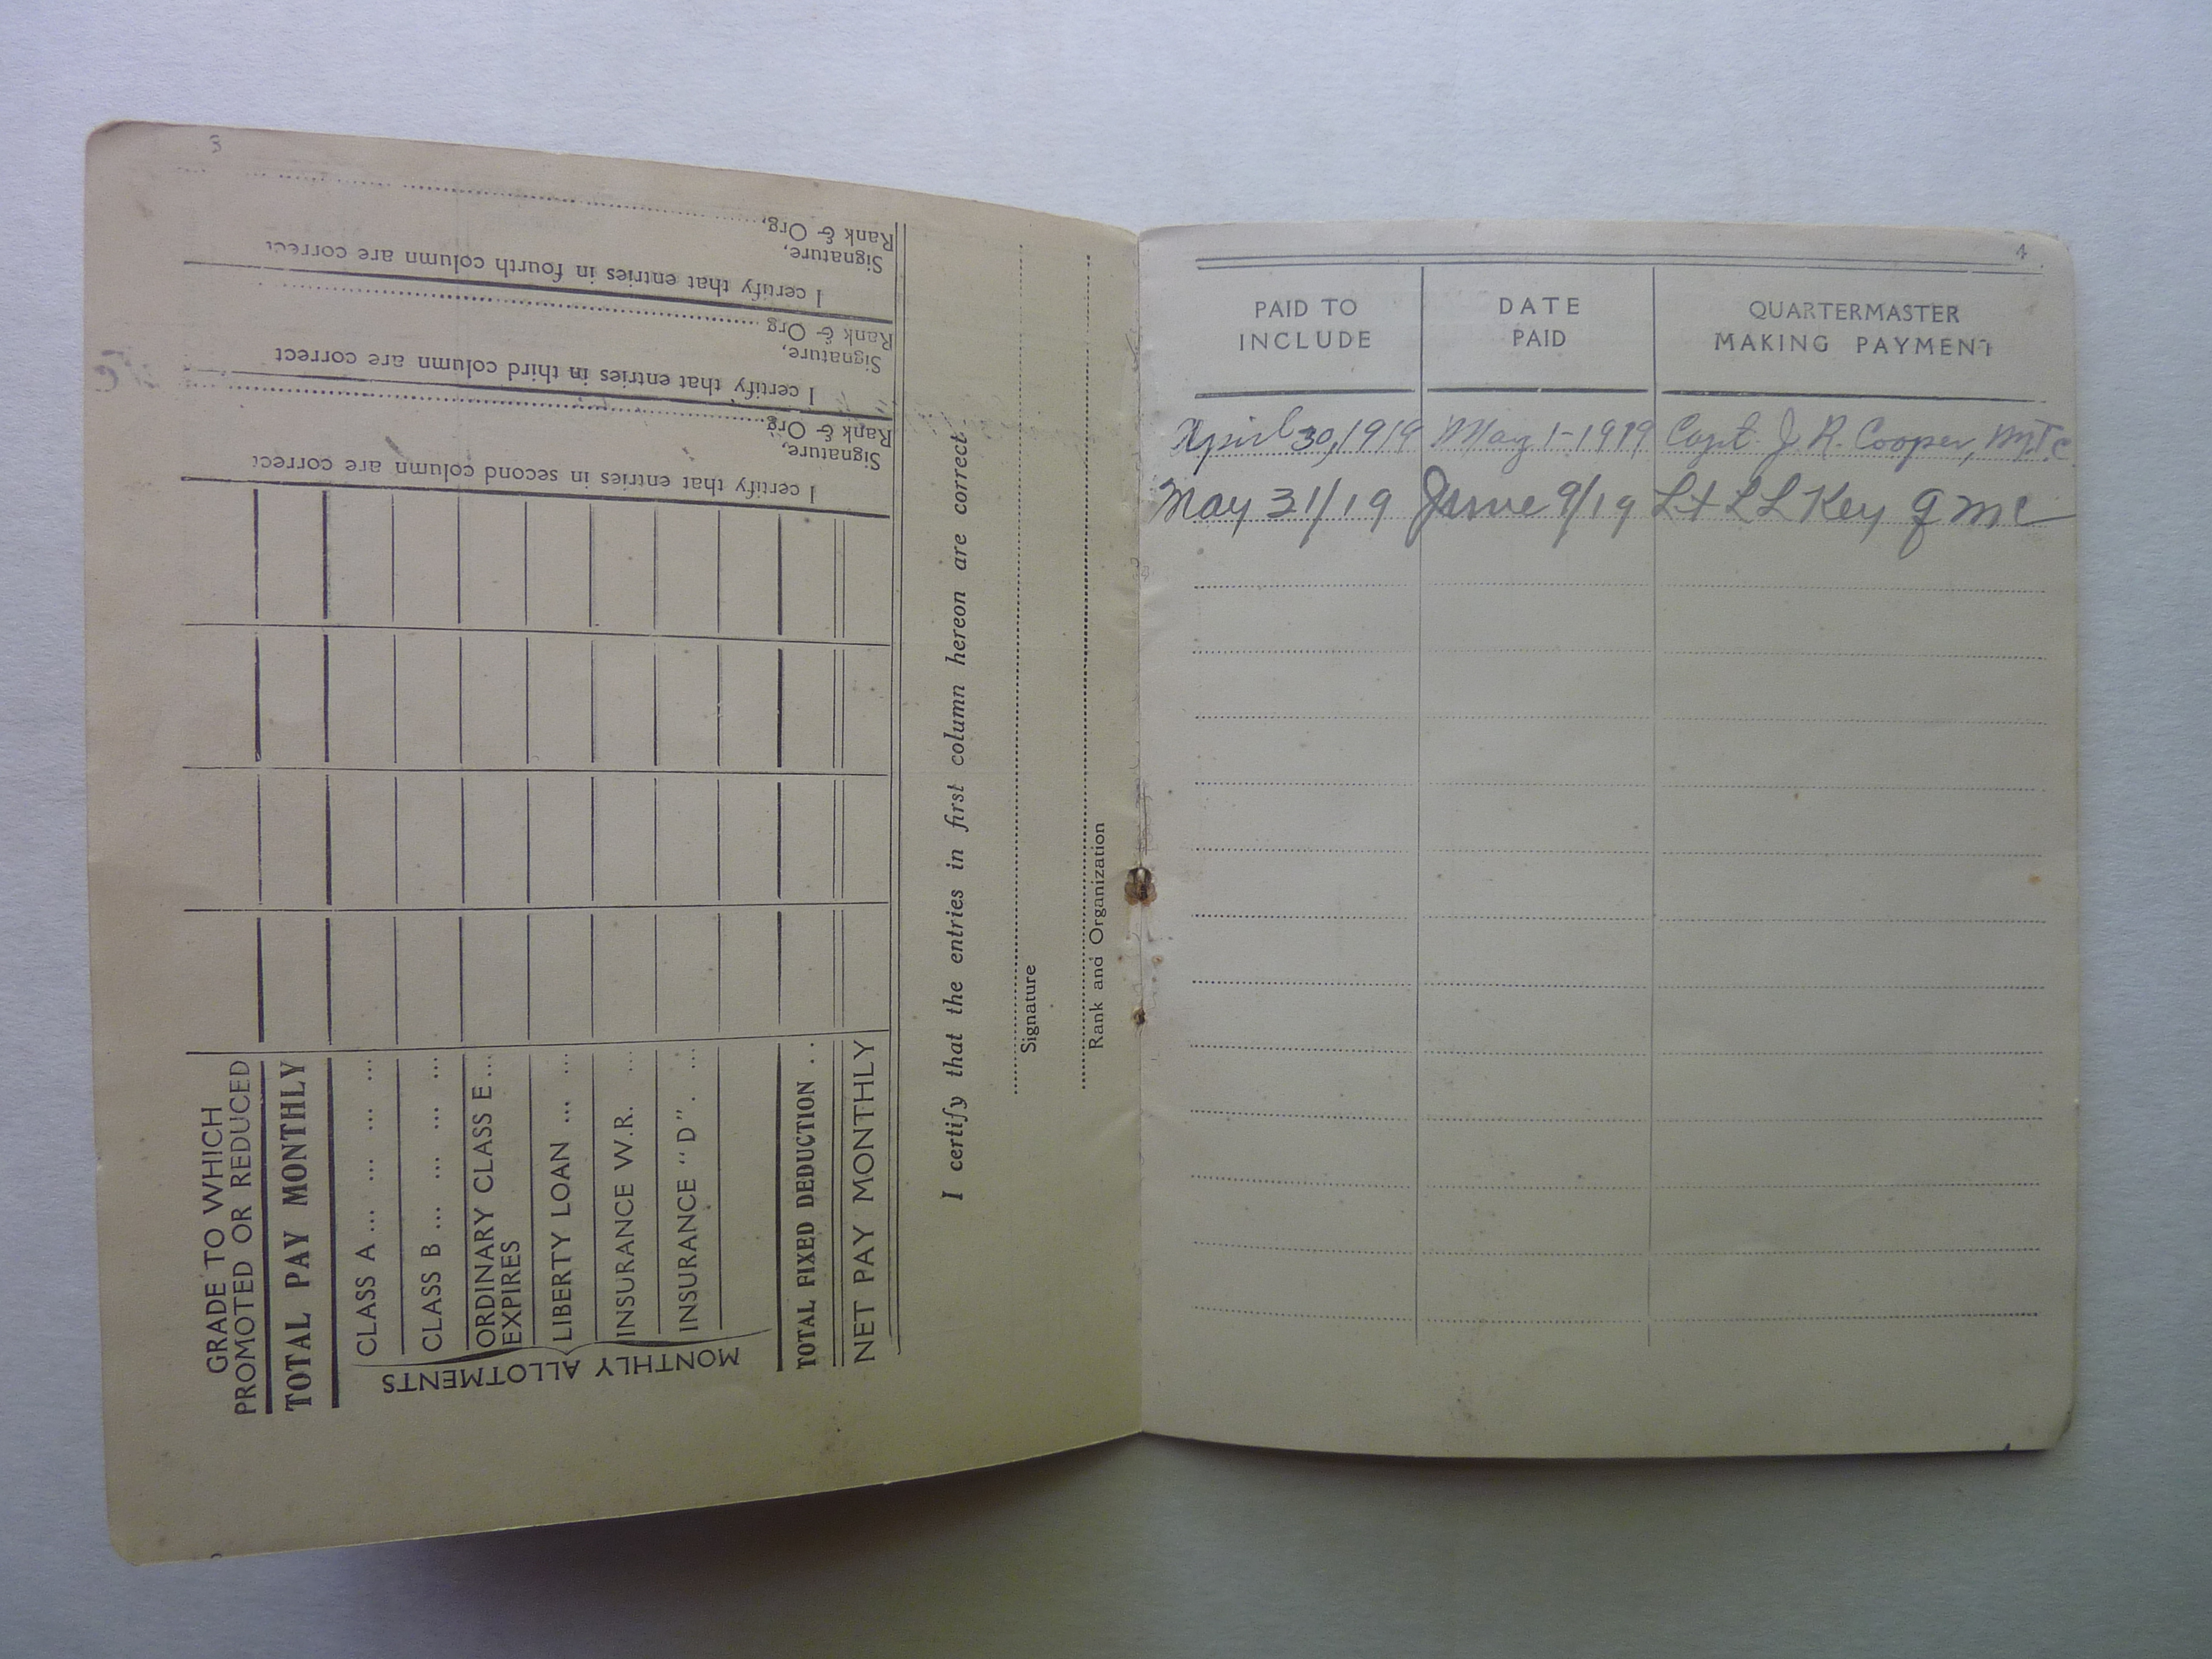 3
GRADE TO WHICH
PROMOTED OR REDUCED
TOTAL PAY MONTHLY
MONTHLY ALLOTMENTS
CLASS A ... ... ...
CLASS B ... ... ...
ORDINARY CLASS E ...
EXPIRES
LIBERTY LOAN ... ...
INSURANCE W.R. ...
INSURANCE "D". ...
TOTAL FIXED DEDUCTION ..
NET PAY MONTHLY
I certify that entries in second column are correct
Signature,
Rank & Org.
I certify that entries in third column are correct
Signature,
Rank & Org
I certify that entries in fourth column are correct
Signature,
Rank & Org,
I certify that the entries in first column hereon are correct.
Signature
Rank and Organization
4
PAID TO INCLUDE
DATE PAID
QUARTERMASTER MAKING PAYMENT
April 30, 1919 May 1-1919 Capt. J. R. Cooper, M.T.C.
May 31/19 June 9/19 Lt L L Key Q M C